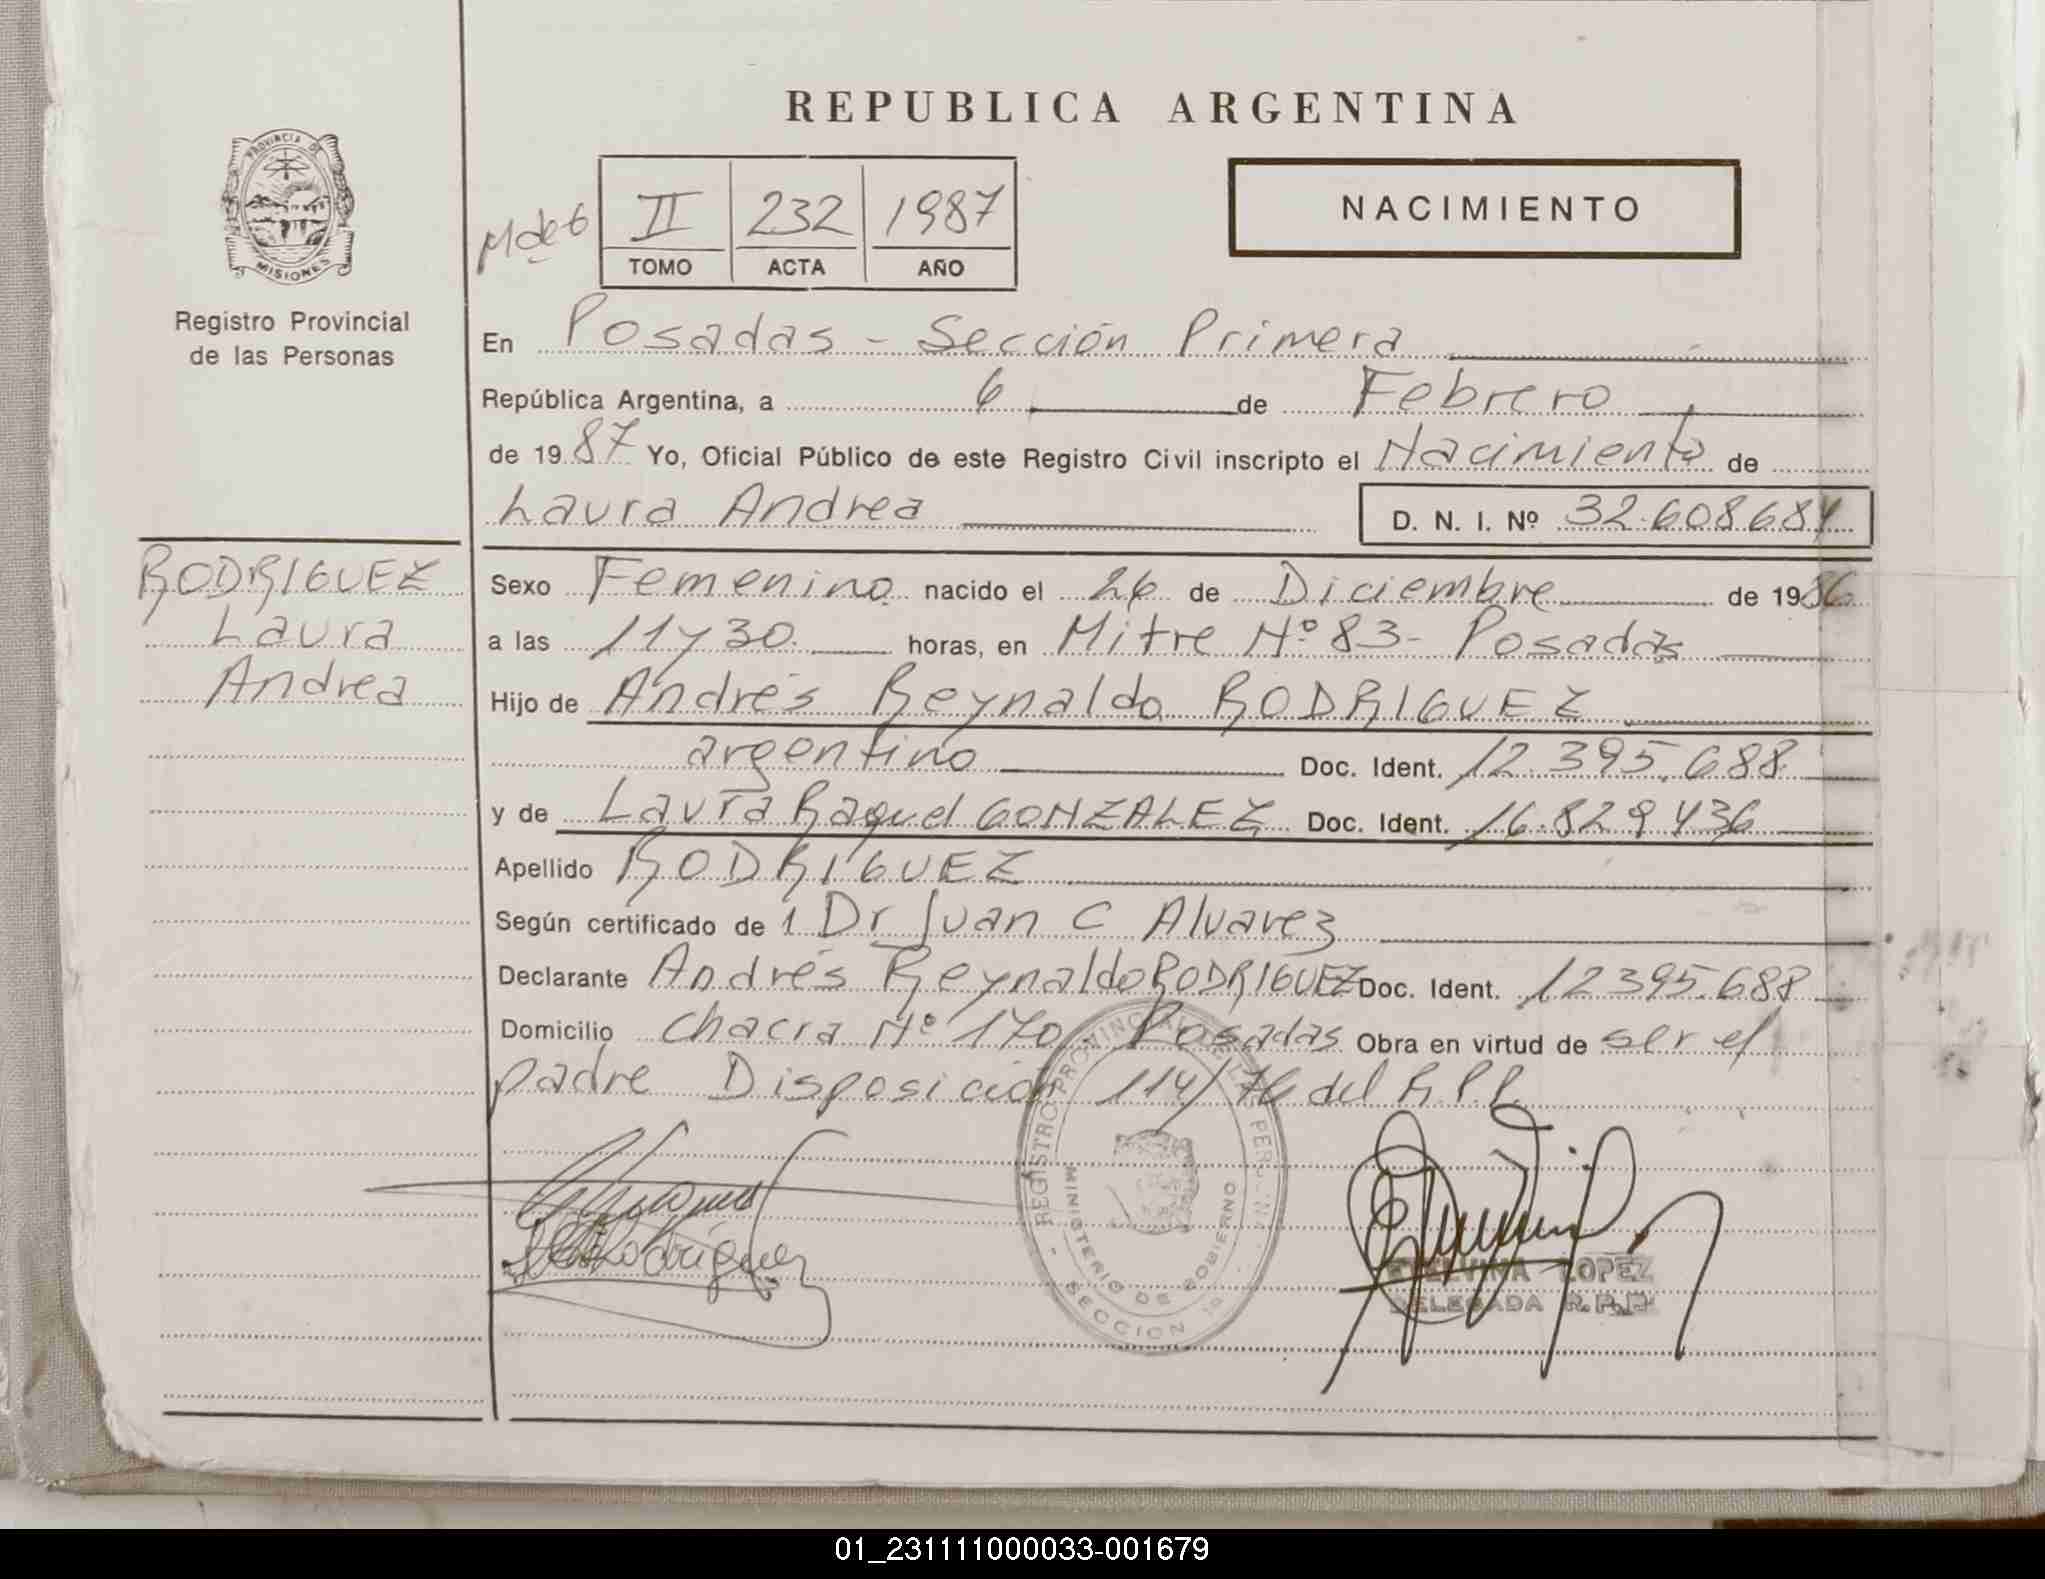 REPUBLICA ARGENTINA
PROVINCIA DE
MISIONES
Registro Provincial
de las Personas
M de 6
II 232 1987
TOMO ACTA AÑO
NACIMIENTO
En Posadas - Sección Primera
República Argentina, a 6 de Febrero
de 1987 Yo, Oficial Público de este Registro Civil inscripto el Nacimiento de
Laura Andrea D. N. I. Nº 32.608684
RODRIGUEZ
Laura
Andrea
Sexo Femenino nacido el 26 de Diciembre de 1986
a las 11 y 30 horas, en Mitre Nº 83 - Posadas
Hijo de Andrés Reynaldo RODRIGUEZ
argentino Doc. Ident. 12.395.688
y de Laura Raquel GONZALEZ Doc. Ident. 16.829436
Apellido RODRIGUEZ
Según certificado de 1 Dr Juan C Alvarez
Declarante Andrés Reynaldo RODRIGUEZ Doc. Ident. 12395.688
Domicilio Chacra Nº 170 - Posadas Obra en virtud de ser el
padre Disposición 114/76 del R.P.P.
REGISTRO PROVINCIAL DE LAS PERSONAS
MINISTERIO DE GOBIERNO
SECCION 1ª
Rodriguez
ETELVINA LOPEZ
DELEGADA R.P.P.
01_231111000033-001679